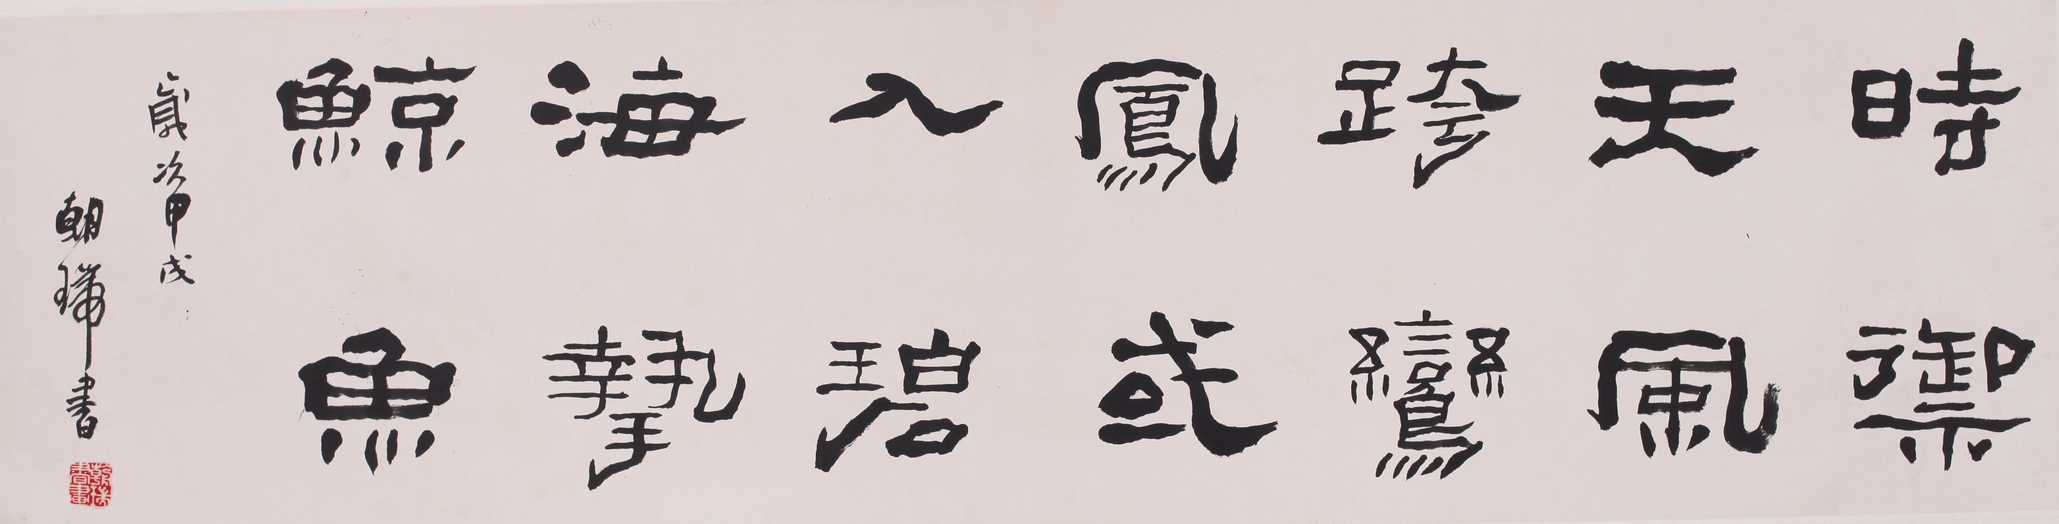 時禦
天風
跨鸞
鳳或
入碧
海摯
鯨魚
歲次甲戌
朝瑞書